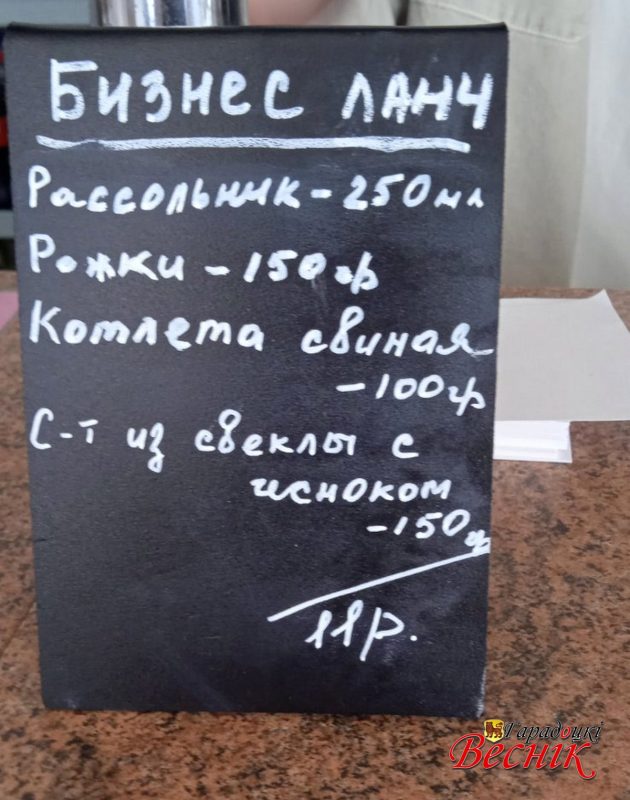 Бизнес ланч
Рассольник - 250 мл
Рожки - 150 гр
Котлета свиная
- 100 гр
С-т из свеклы с
чесноком
- 150 гр
11 р.
Гарадоцкі
Веснік